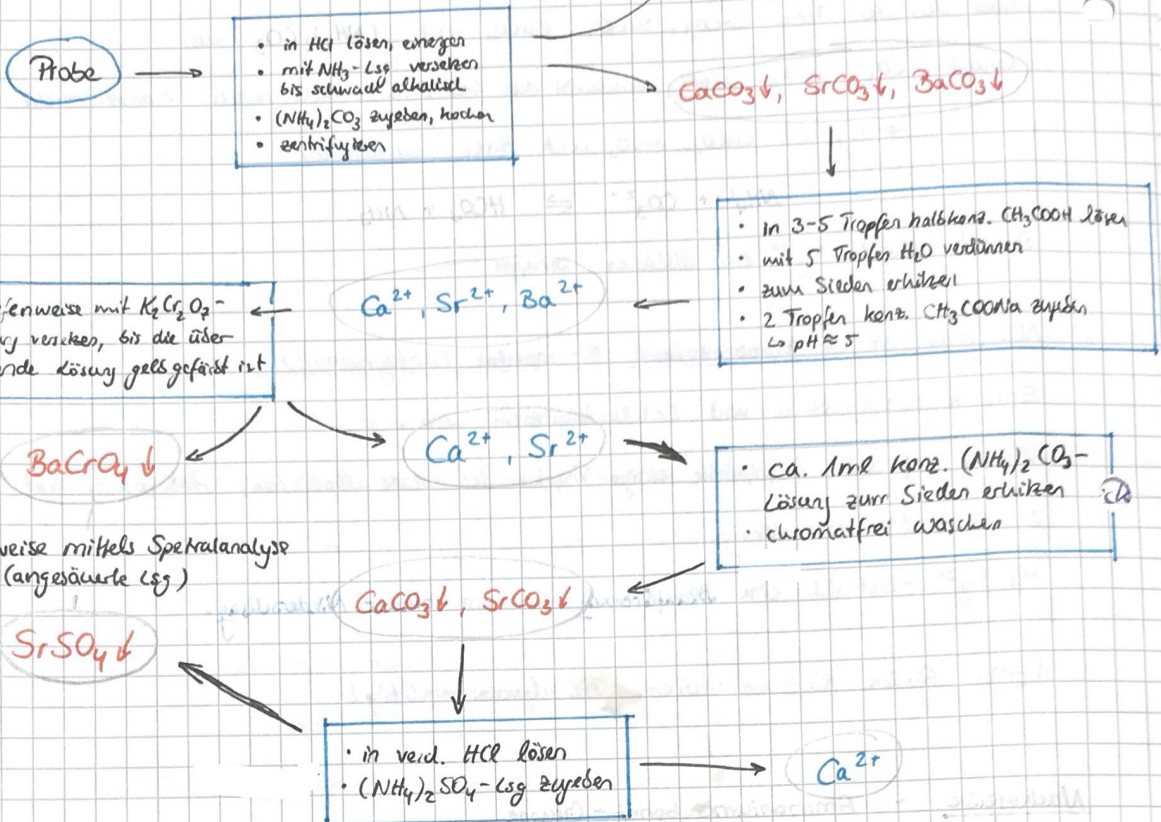 Probe
• in HCl lösen, einengen
• mit NH3-Lsg versetzen
bis schwach alkalisch
• (NH4)2CO3 zugeben, kochen
• zentrifugieren
CaCO3↓, SrCO3↓, BaCO3↓
• in 3-5 Tropfen halbkonz. CH3COOH lösen
• mit 5 Tropfen H2O verdünnen
• zum Sieden erhitzen
• 2 Tropfen konz. CH3COONa zugeben
↳ pH ≈ 5
Ca2+, Sr2+, Ba2+
fenweise mit K2Cr2O7-
versetzen, bis die über-
nde Lösung gelb gefärbt ist
BaCrO4↓
Ca2+, Sr2+
• ca. 1ml konz. (NH4)2CO3-
Lösung zum Sieden erhitzen
• chromatfrei waschen
weise mittels Spektralanalyse
(angesäuerte Lsg)
CaCO3↓, SrCO3↓
SrSO4↓
• in verd. HCl lösen
• (NH4)2SO4-Lsg zugeben
Ca2+